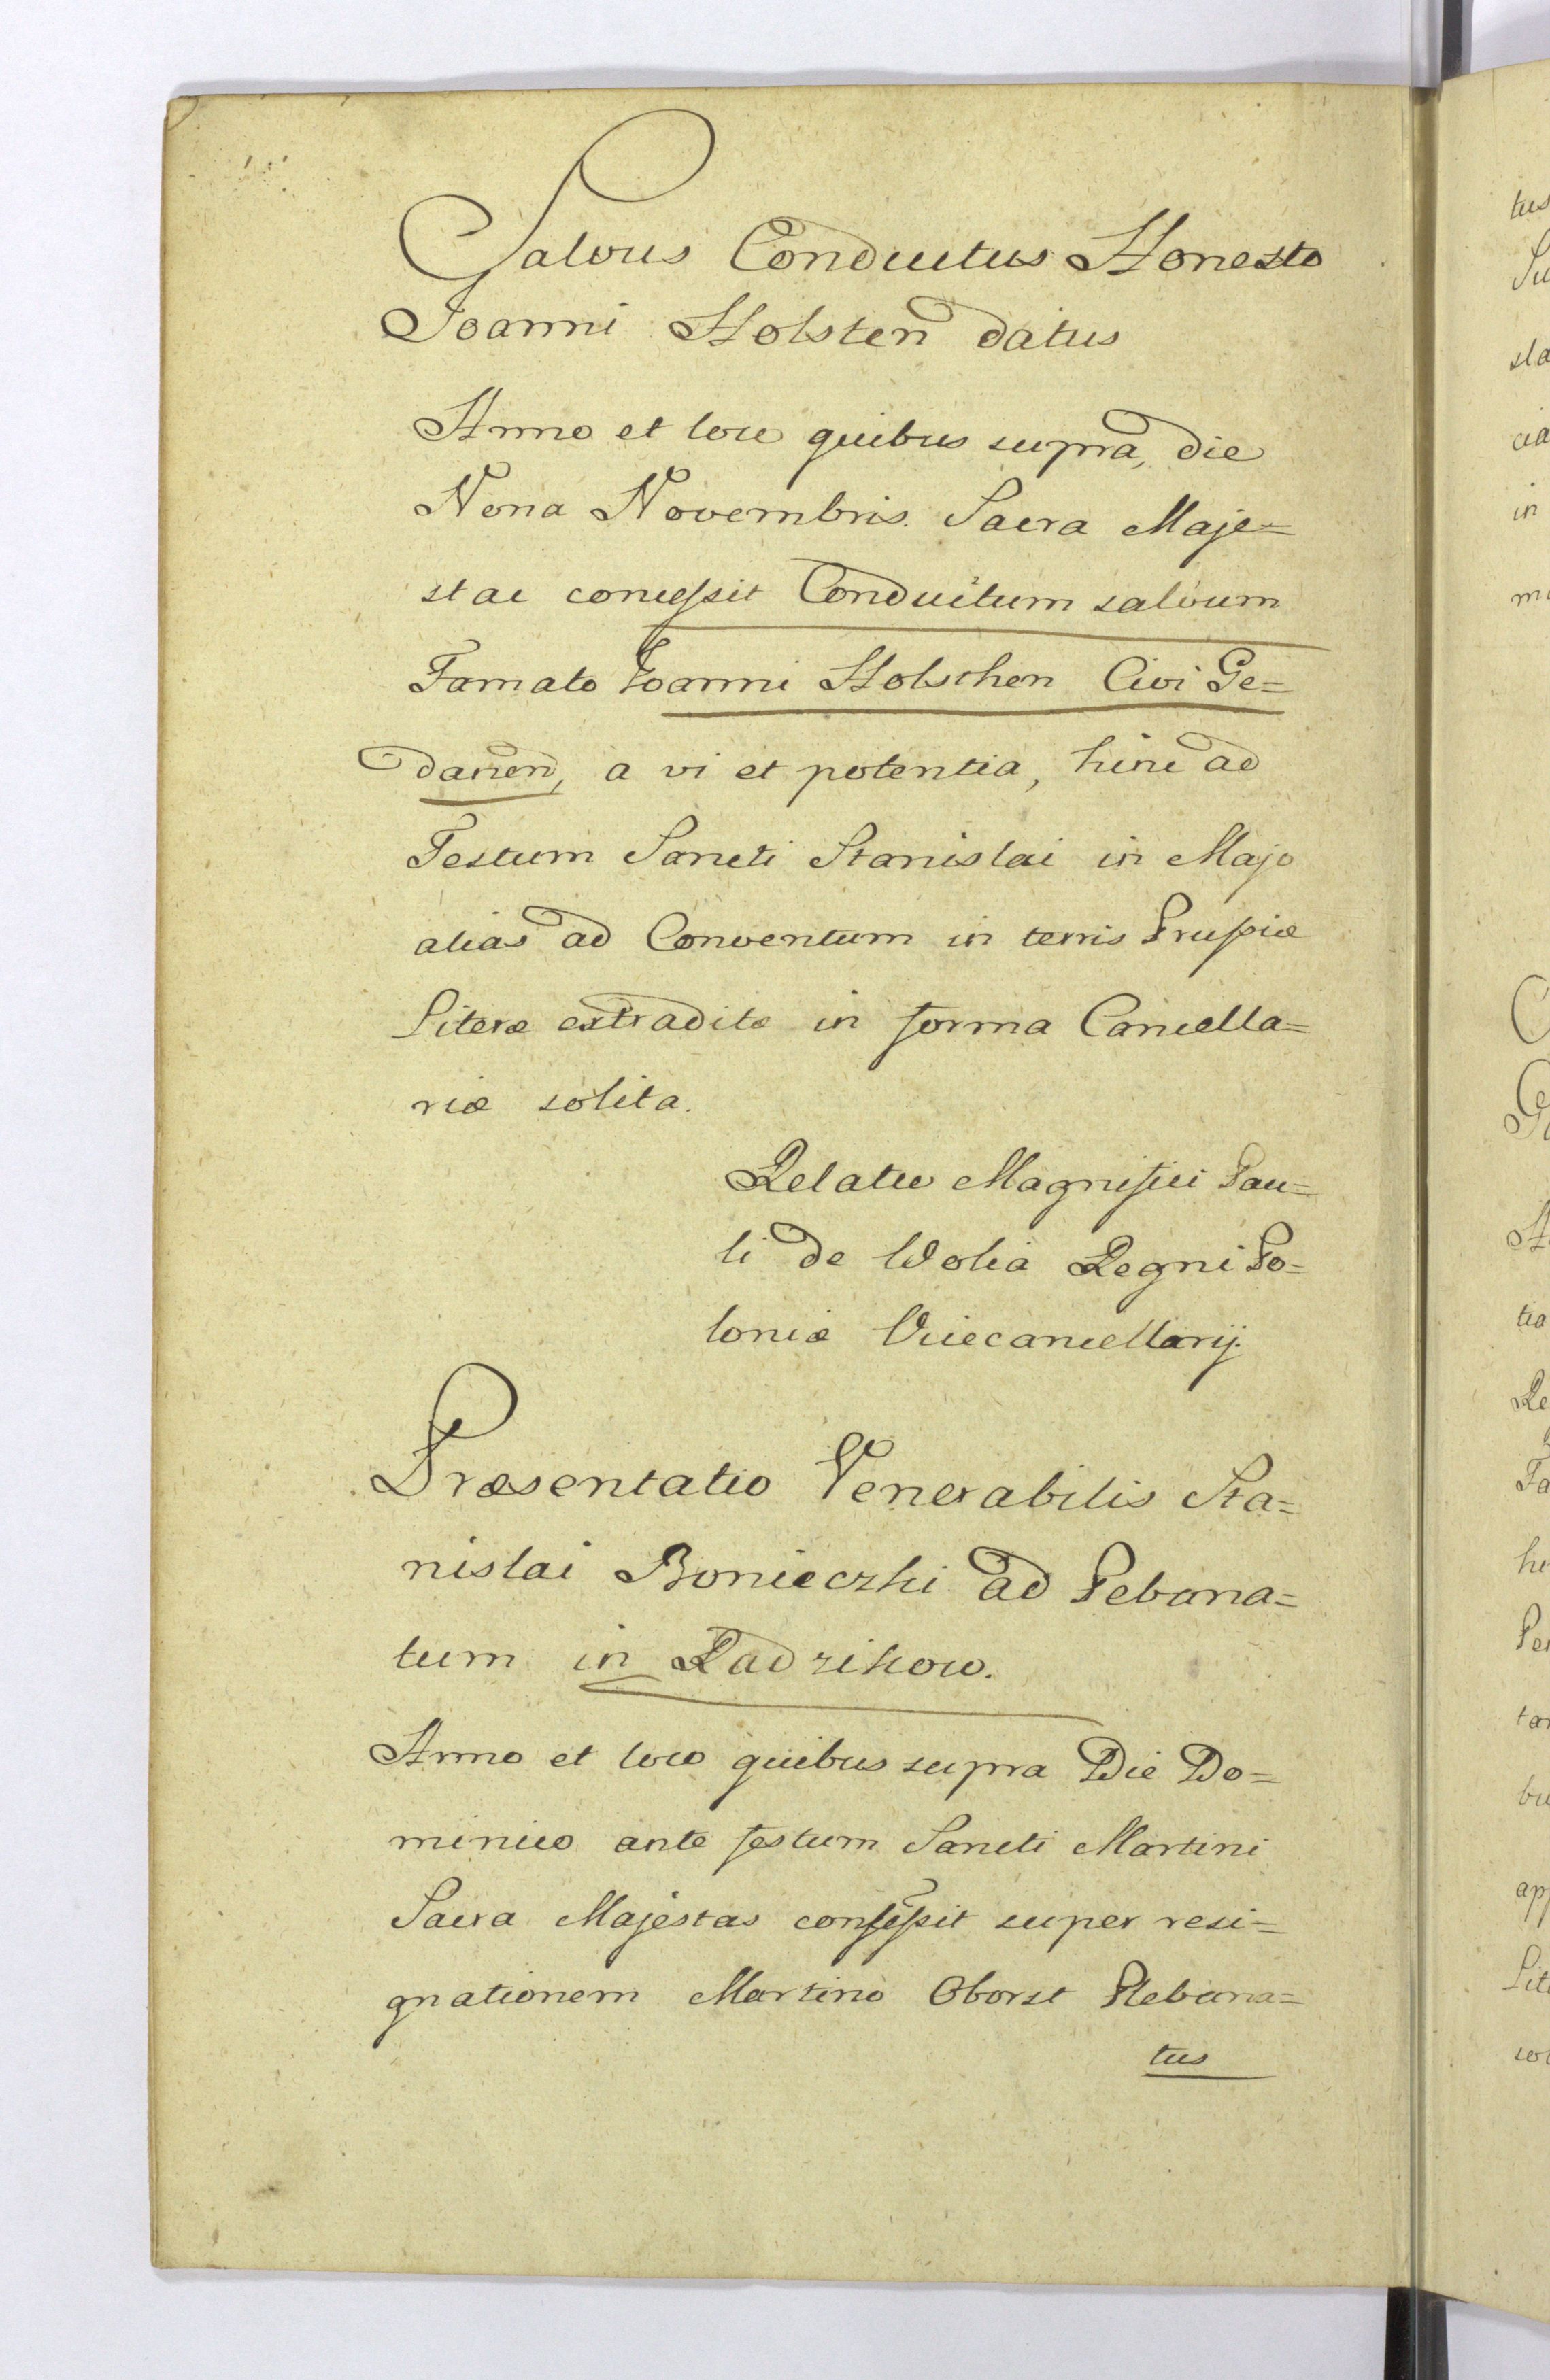 Salvus Conductus Honesto
Joanni Holsten datus
Anno et loco quibus supra, die
Nona Novembris. Sacra Maje=
stac concessit Conductum salvum
Famato Joanni Holschen Civi Ge=
danen, a vi et potentia, hinc ad
Festum Sancti Stanislai in Majo
alias ad Conventum in terris Prussiæ
Literæ extraditæ in forma Cancella=
riæ solita.
Relatio Magnifici Pau=
li de Wolia Regni Po=
loniæ Vicecancellarij.
Præsentatio Venerabilis Sta=
nislai Bonieczki ad Pebana=
tum in Radzikow.
Anno et loco quibus supra Die Do=
minico ante festum Sancti Martini
Sacra Majestas consessit super resi=
gnationem Martino Oborst Plebana=
tus